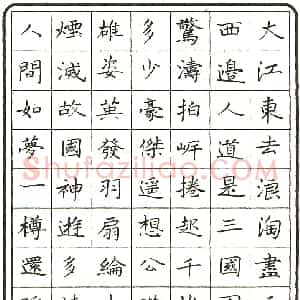 大江東去浪淘盡
西邊人道是三國
驚濤拍岍捲起千
多少豪傑遥想公
雄姿英發羽扇綸
煙滅故國神遊多
人間如夢一樽還
Shufaziliao.com